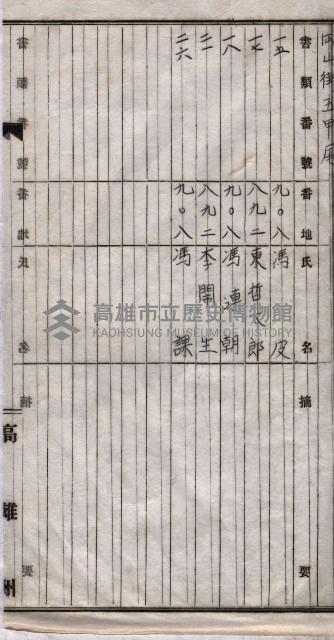 岡山街五甲尾
書類番號 番地 氏名 摘要
一五 九〇八 馮皮
一七 八九二 東哲次郎
一八 九〇八 馮連朝
二一 八九二 李鬧生
二六 九〇八 馮課
書類番號 番地 氏名 摘要
高雄州
高雄市立歷史博物館
KAOHSIUNG MUSEUM OF HISTORY